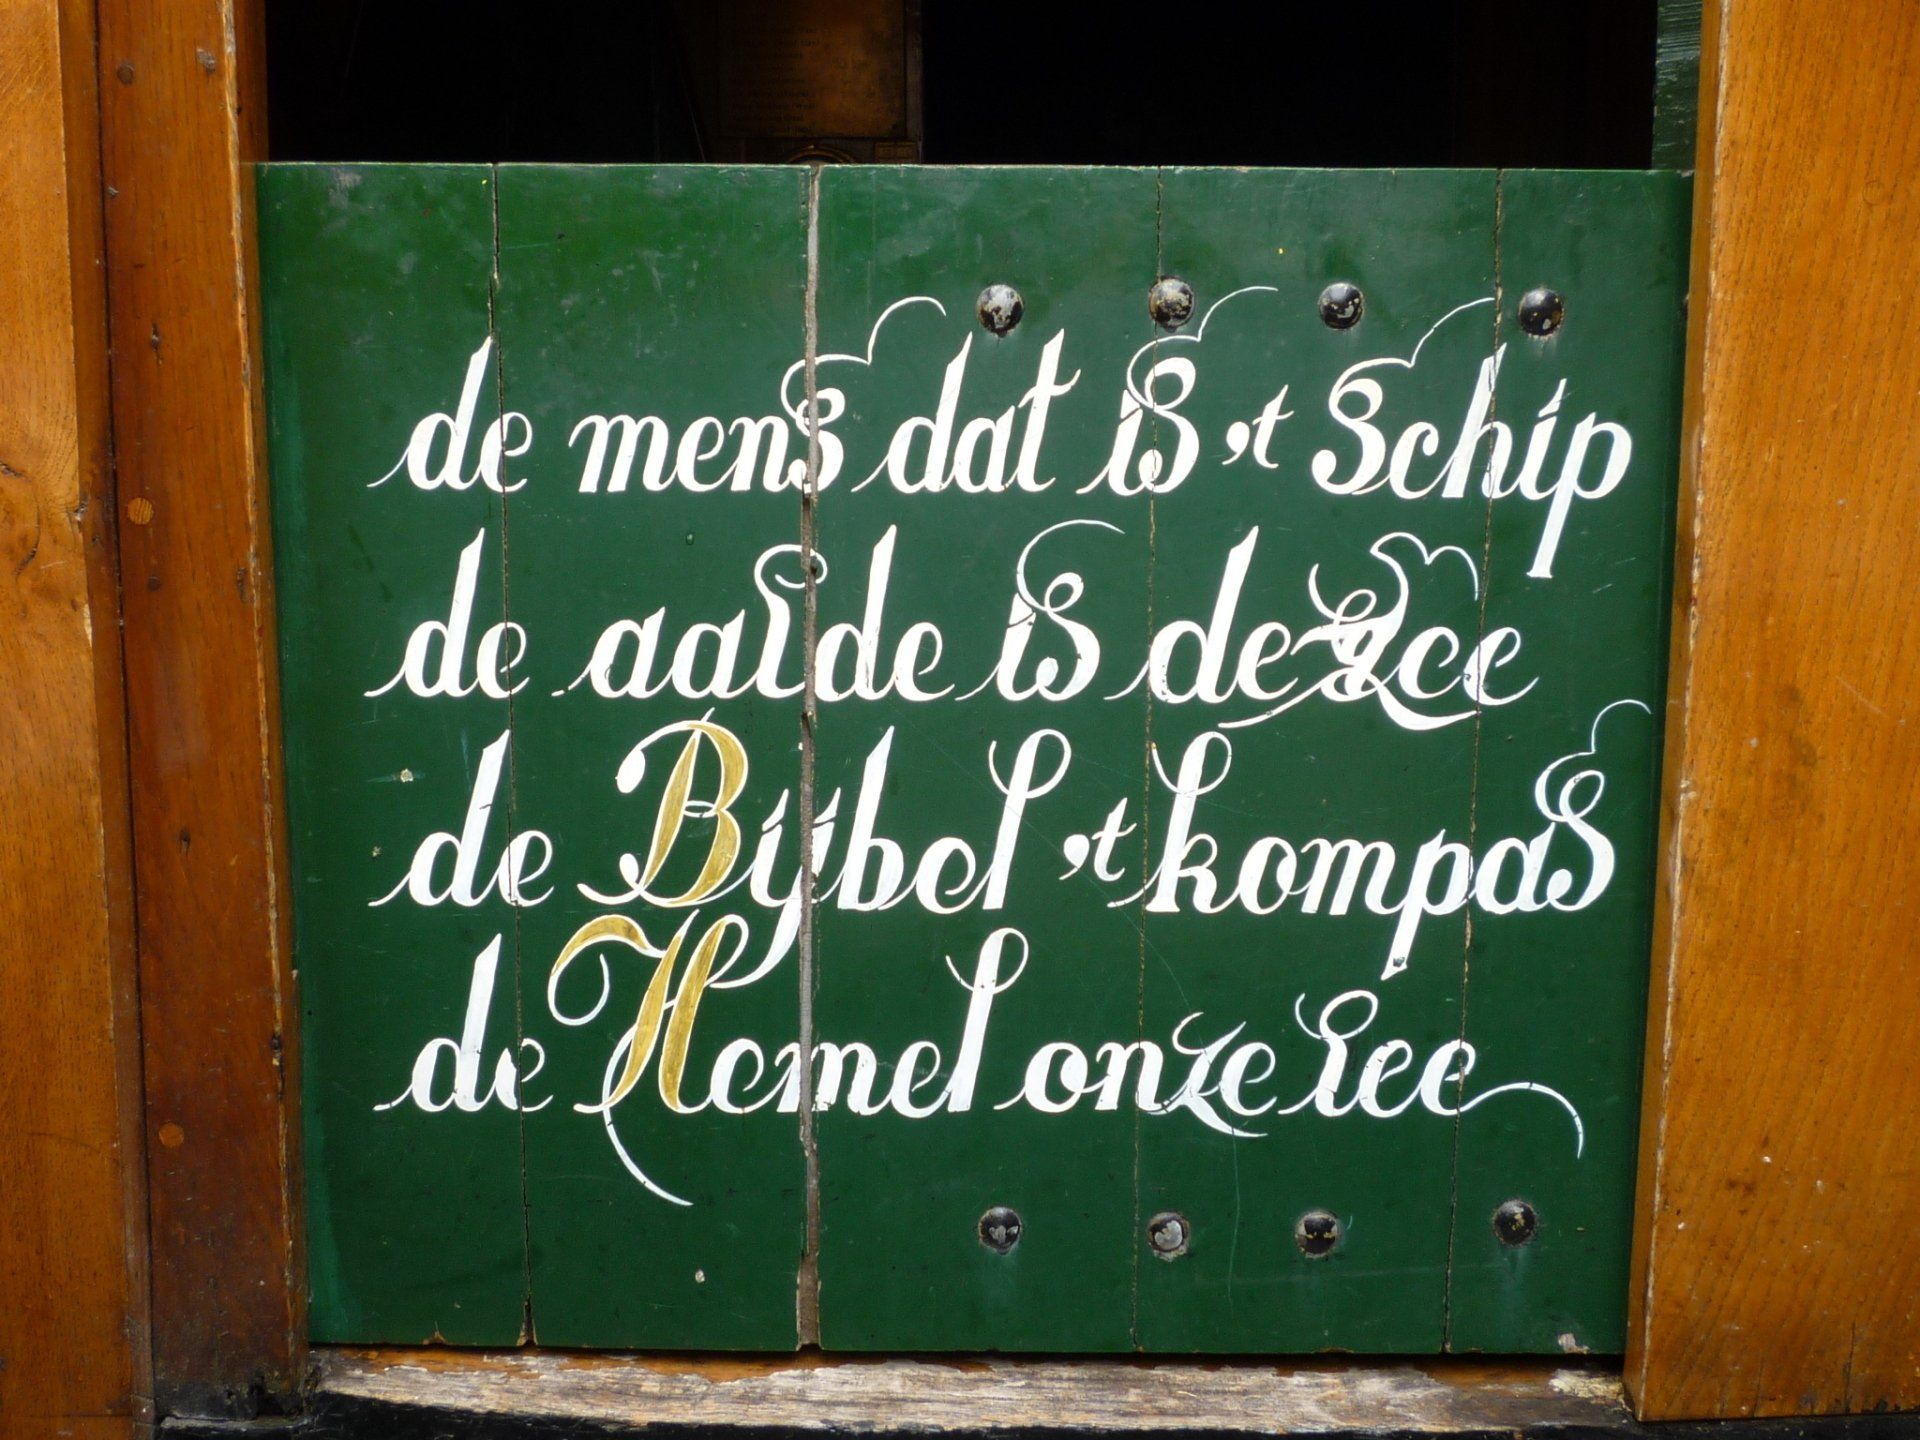 de mens dat is 't Schip
de aarde is de zee
de Bijbel 't kompas
de Hemel onze ree